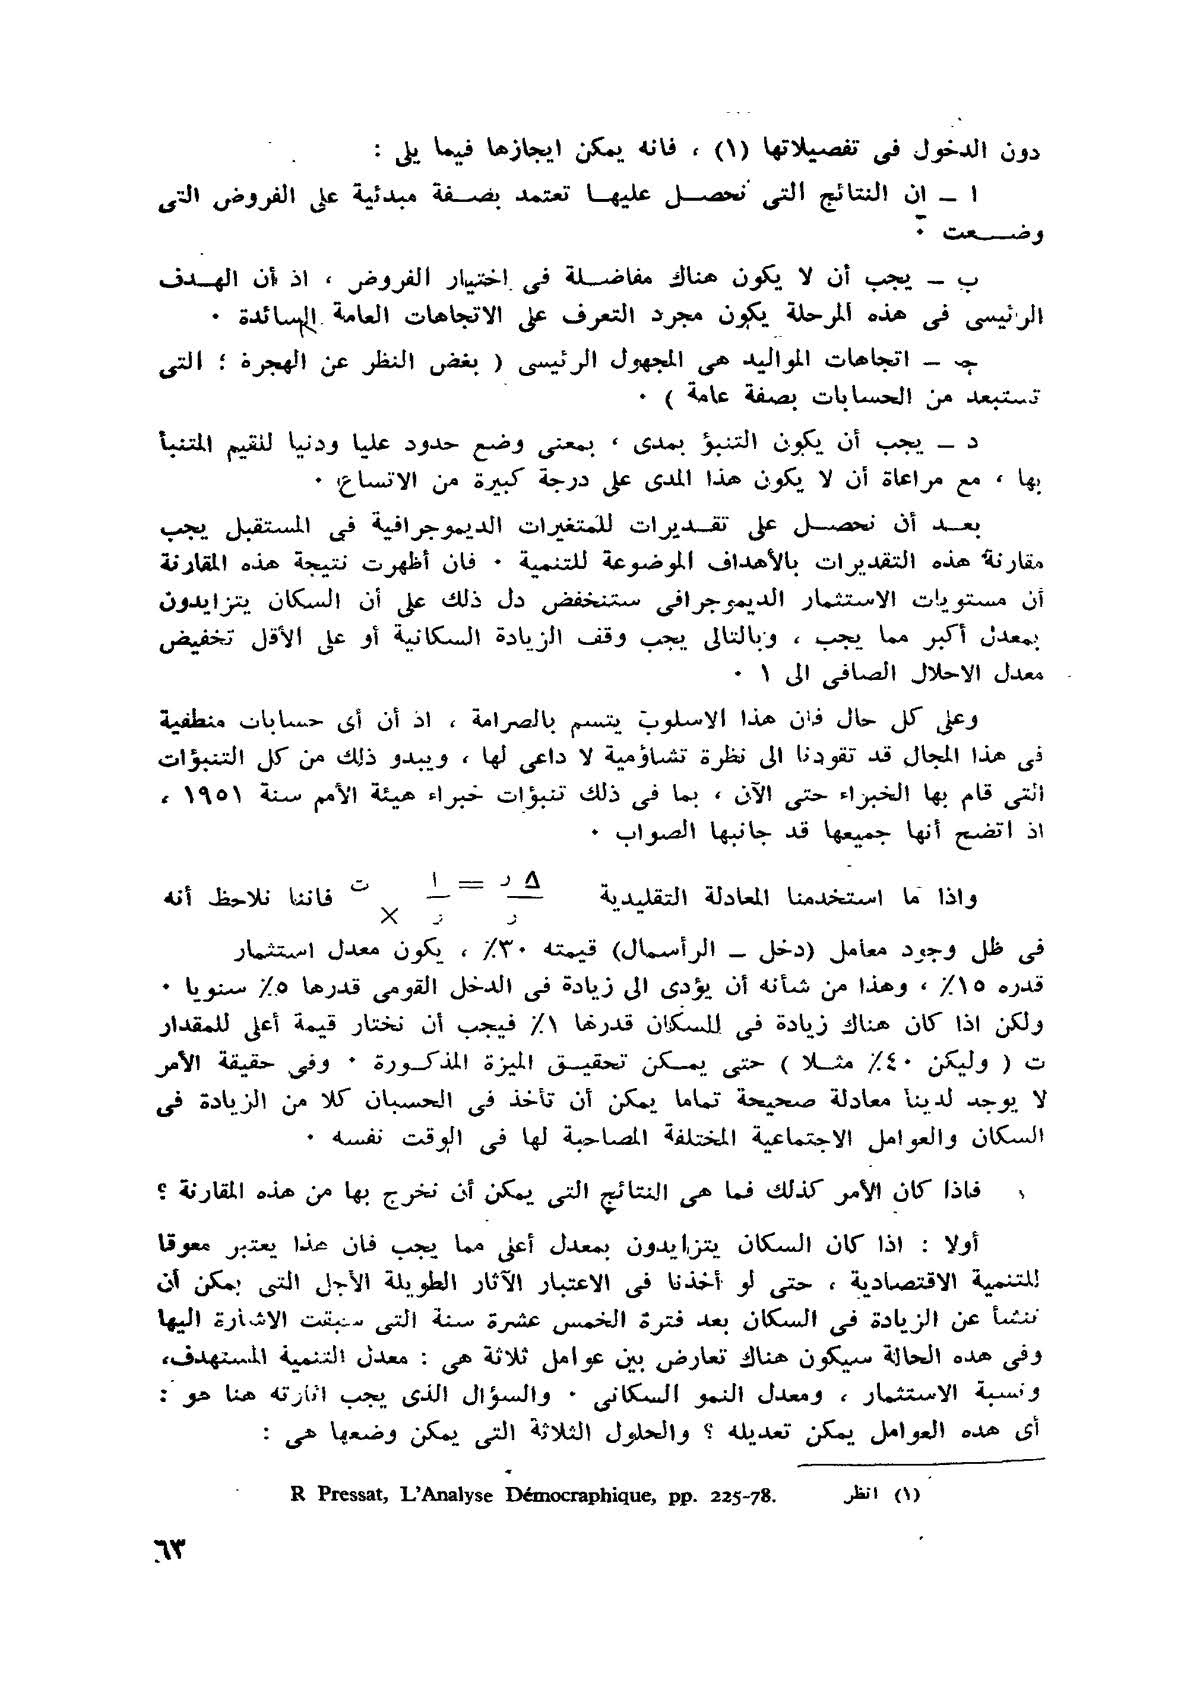 دون الدخول فى تفصيلاتها (١) ، فانه يمكن ايجازها فيما يلى :
ا ـ ان النتائج التى نحصل عليها تعتمد بصفة مبدئية على الفروض التى
وضعت ٠
ب ـ يجب أن لا يكون هناك مفاضلة فى اختيار الفروض ، اذ أن الهدف
الرئيسى فى هذه المرحلة يكون مجرد التعرف على الاتجاهات العامة السائدة ٠
جـ ـ اتجاهات المواليد هى المجهول الرئيسى ( بغض النظر عن الهجرة ؛ التى
تستبعد من الحسابات بصفة عامة ) ٠
د ـ يجب أن يكون التنبؤ بمدى ، بمعنى وضع حدود عليا ودنيا للقيم المتنبأ
بها ، مع مراعاة أن لا يكون هذا المدى على درجة كبيرة من الاتساع ٠
بعد أن نحصل على تقديرات للمتغيرات الديموجرافية فى المستقبل يجب
مقارنة هذه التقديرات بالأهداف الموضوعة للتنمية ٠ فان أظهرت نتيجة هذه المقارنة
أن مستويات الاستثمار الديموجرافى ستنخفض دل ذلك على أن السكان يتزايدون
بمعدل أكبر مما يجب ، وبالتالى يجب وقف الزيادة السكانية أو على الأقل تخفيض
معدل الاحلال الصافى الى ١ ٠
وعلى كل حال فان هذا الاسلوب يتسم بالصرامة ، اذ أن أى حسابات منطفية
فى هذا المجال قد تقودنا الى نظرة تشاؤمية لا داعى لها ، ويبدو ذلك من كل التنبؤات
التى قام بها الخبراء حتى الآن ، بما فى ذلك تنبؤات خبراء هيئة الأمم سنة ١٩٥١ ،
اذ اتضح أنها جميعها قد جانبها الصواب ٠
واذا ما استخدمنا المعادلة التقليدية Δ ر / ر = ا / ر × ت فاننا نلاحظ أنه
فى ظل وجود معامل (دخل ـ الرأسمال) قيمته ٣٠٪ ، يكون معدل استثمار
قدره ١٥٪ ، وهذا من شأنه أن يؤدى الى زيادة فى الدخل القومى قدرها ٥٪ سنويا ٠
ولكن اذا كان هناك زيادة فى للسكان قدرها ١٪ فيجب أن نختار قيمة أعلى للمقدار
ت ( وليكن ٤٠٪ مثلا ) حتى يمكن تحقيق الميزة المذكورة ٠ وفى حقيقة الأمر
لا يوجد لدينا معادلة صحيحة تماما يمكن أن تأخذ فى الحسبان كلا من الزيادة فى
السكان والعوامل الاجتماعية المختلفة المصاحبة لها فى الوقت نفسه ٠
فاذا كان الأمر كذلك فما هى النتائج التى يمكن أن نخرج بها من هذه المقارنة ؟
أولا : اذا كان السكان يتزايدون بمعدل أعلى مما يجب فان هذا يعتبر معوقا
للتنمية الاقتصادية ، حتى لو أخذنا فى الاعتبار الآثار الطويلة الأجل التى يمكن أن
تنشأ عن الزيادة فى السكان بعد فترة الخمس عشرة سنة التى سبقت الاشارة اليها
وفى هده الحالة سيكون هناك تعارض بين عوامل ثلاثة هى : معدل التنمية المستهدف،
ونسبة الاستثمار ، ومعدل النمو السكانى ٠ والسؤال الذى يجب اثارته هنا هو :
أى هده العوامل يمكن تعديله ؟ والحلول الثلاثة التى يمكن وضعها هى :
(١) انظر R Pressat, L'Analyse Démocraphique, pp. 225-78.
٦٣